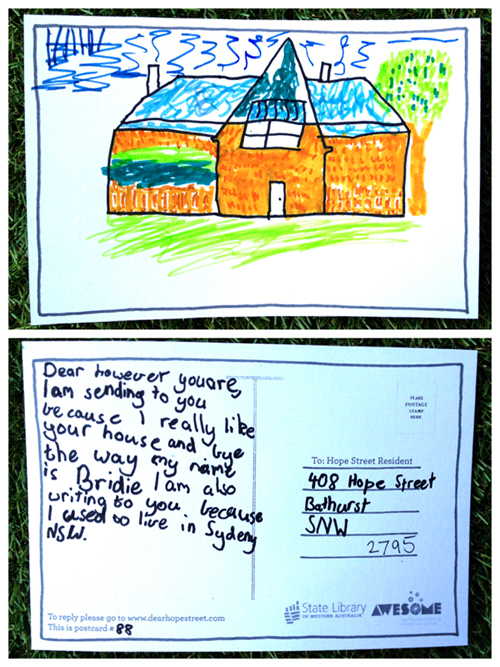 Dear however youare,
I am sending to you
because I really like
your house and bye
the way my name
is Bridie I am also
writing to you because
I used to live in Sydeny
NSW.
PLACE
POSTAGE
STAMP
HERE
To: Hope Street Resident
408 Hope Street
Bathurst
SNW
2795
To reply please go to www.dearhopestreet.com
This is postcard # 88
State Library
OF WESTERN AUSTRALIA
AWESOME